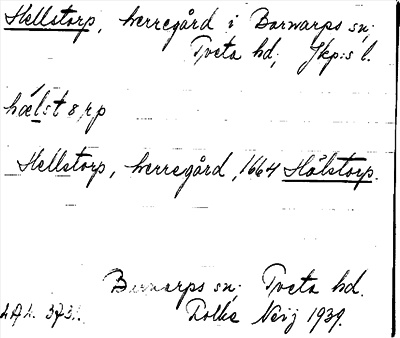 Hellstorp, herregård i Barnarps sn;
Tveta hd; Jkp:s l.
hǽlst8rp
Hellstorp, herregård, 1664 Hälstorp.
Barnarps sn; Tveta hd.
Folke Neij 1939.